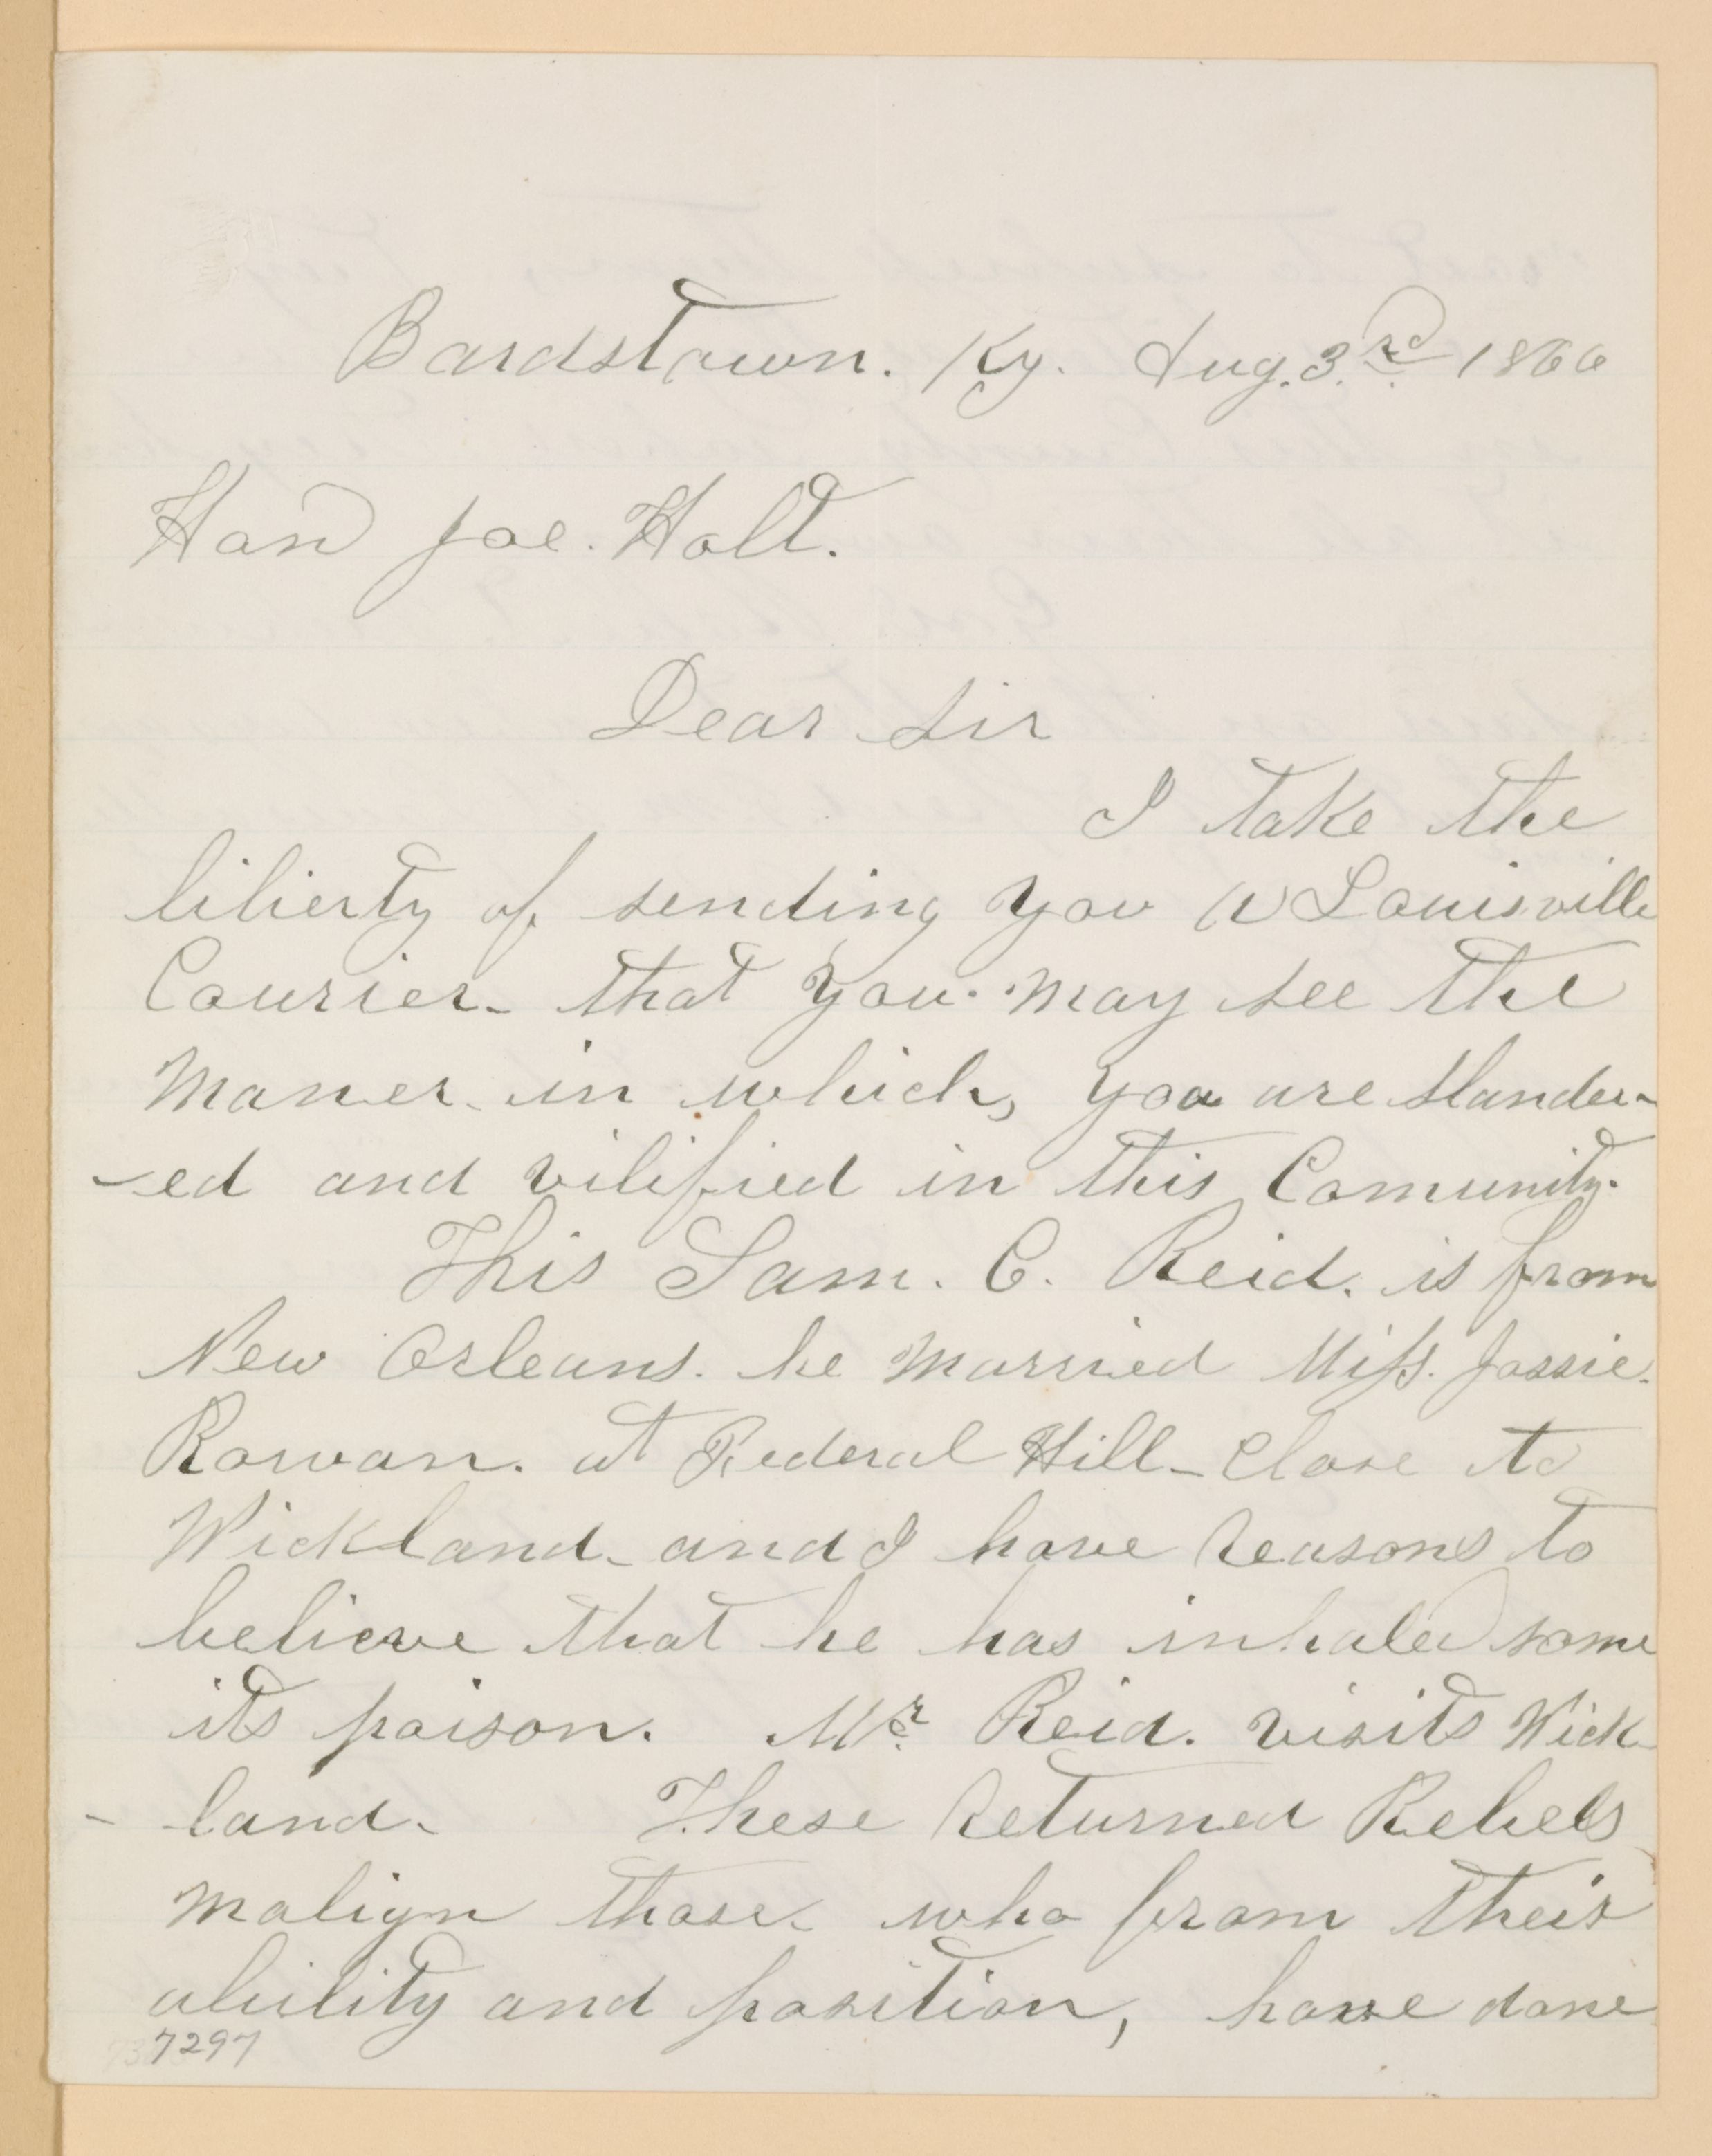 Bardstown. Ky. Aug. 3rd 1866
Hon Joe. Holt.
Dear Sir
I take the
liberty of sending you a Louisville
Courier- that you may see the
maner in which, you are slander-
-ed and vilified in this Comunity.
This Sam. C. Reid. is from
New Orleans. he married Miss. Jossie.
Rowan. at Federal Hill- Close to
Wickland- and I have reasons to
believe that he has inhaled some
its poison. Mr. Reid. visits Wick-
-land. These returned Rebels
malign those who from their
ability and position, have done
7297